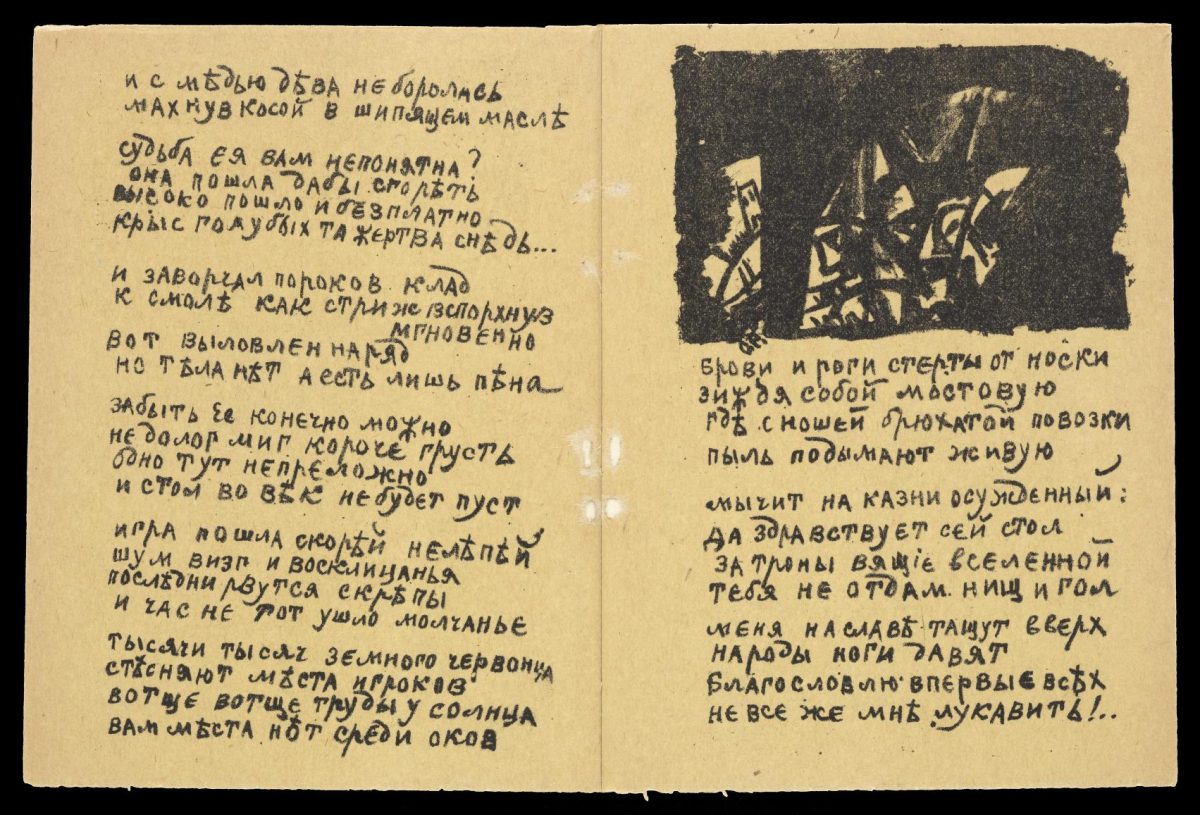 и с мѣдью дѣва не боролась
махнув косой в шипящем маслѣ
судьба ея вам непонятна?
она пошла дабы сгорѣть
высоко пошло и безплатно
крыс голубых та жертва снѣдь...
и заворчал пороков клад
к смолѣ как стриж вспорхнув
мгновенно
вот выловлен наряд
но тѣла нѣт а есть лишь пѣна
забыть ее конечно можно
недолог миг короче грусть
одно тут непреложно
и стол во вѣк не будет пуст
игра пошла скорѣй нелѣпѣй
шум визг и восклицанья
послѣдни рвутся скрѣпы
и час не тот ушло молчанье
тысячи тысяч земного червонца
стѣсняют мѣста игроков
вотще вотще труды у солнца
вам мѣста нѣт среди оков
брови и роги стерты от носки
зиждя собой мостовую
гдѣ с ношей брюхатой повозки
пыль подымают живую
мычит на казни осужденный:
да здравствует сей стол
за троны вящіе вселенной
тебя не отдам. нищ и гол
меня на славѣ тащут вверх
народы ноги давят
благословлю впервые всѣх
не все же мнѣ лукавить!..